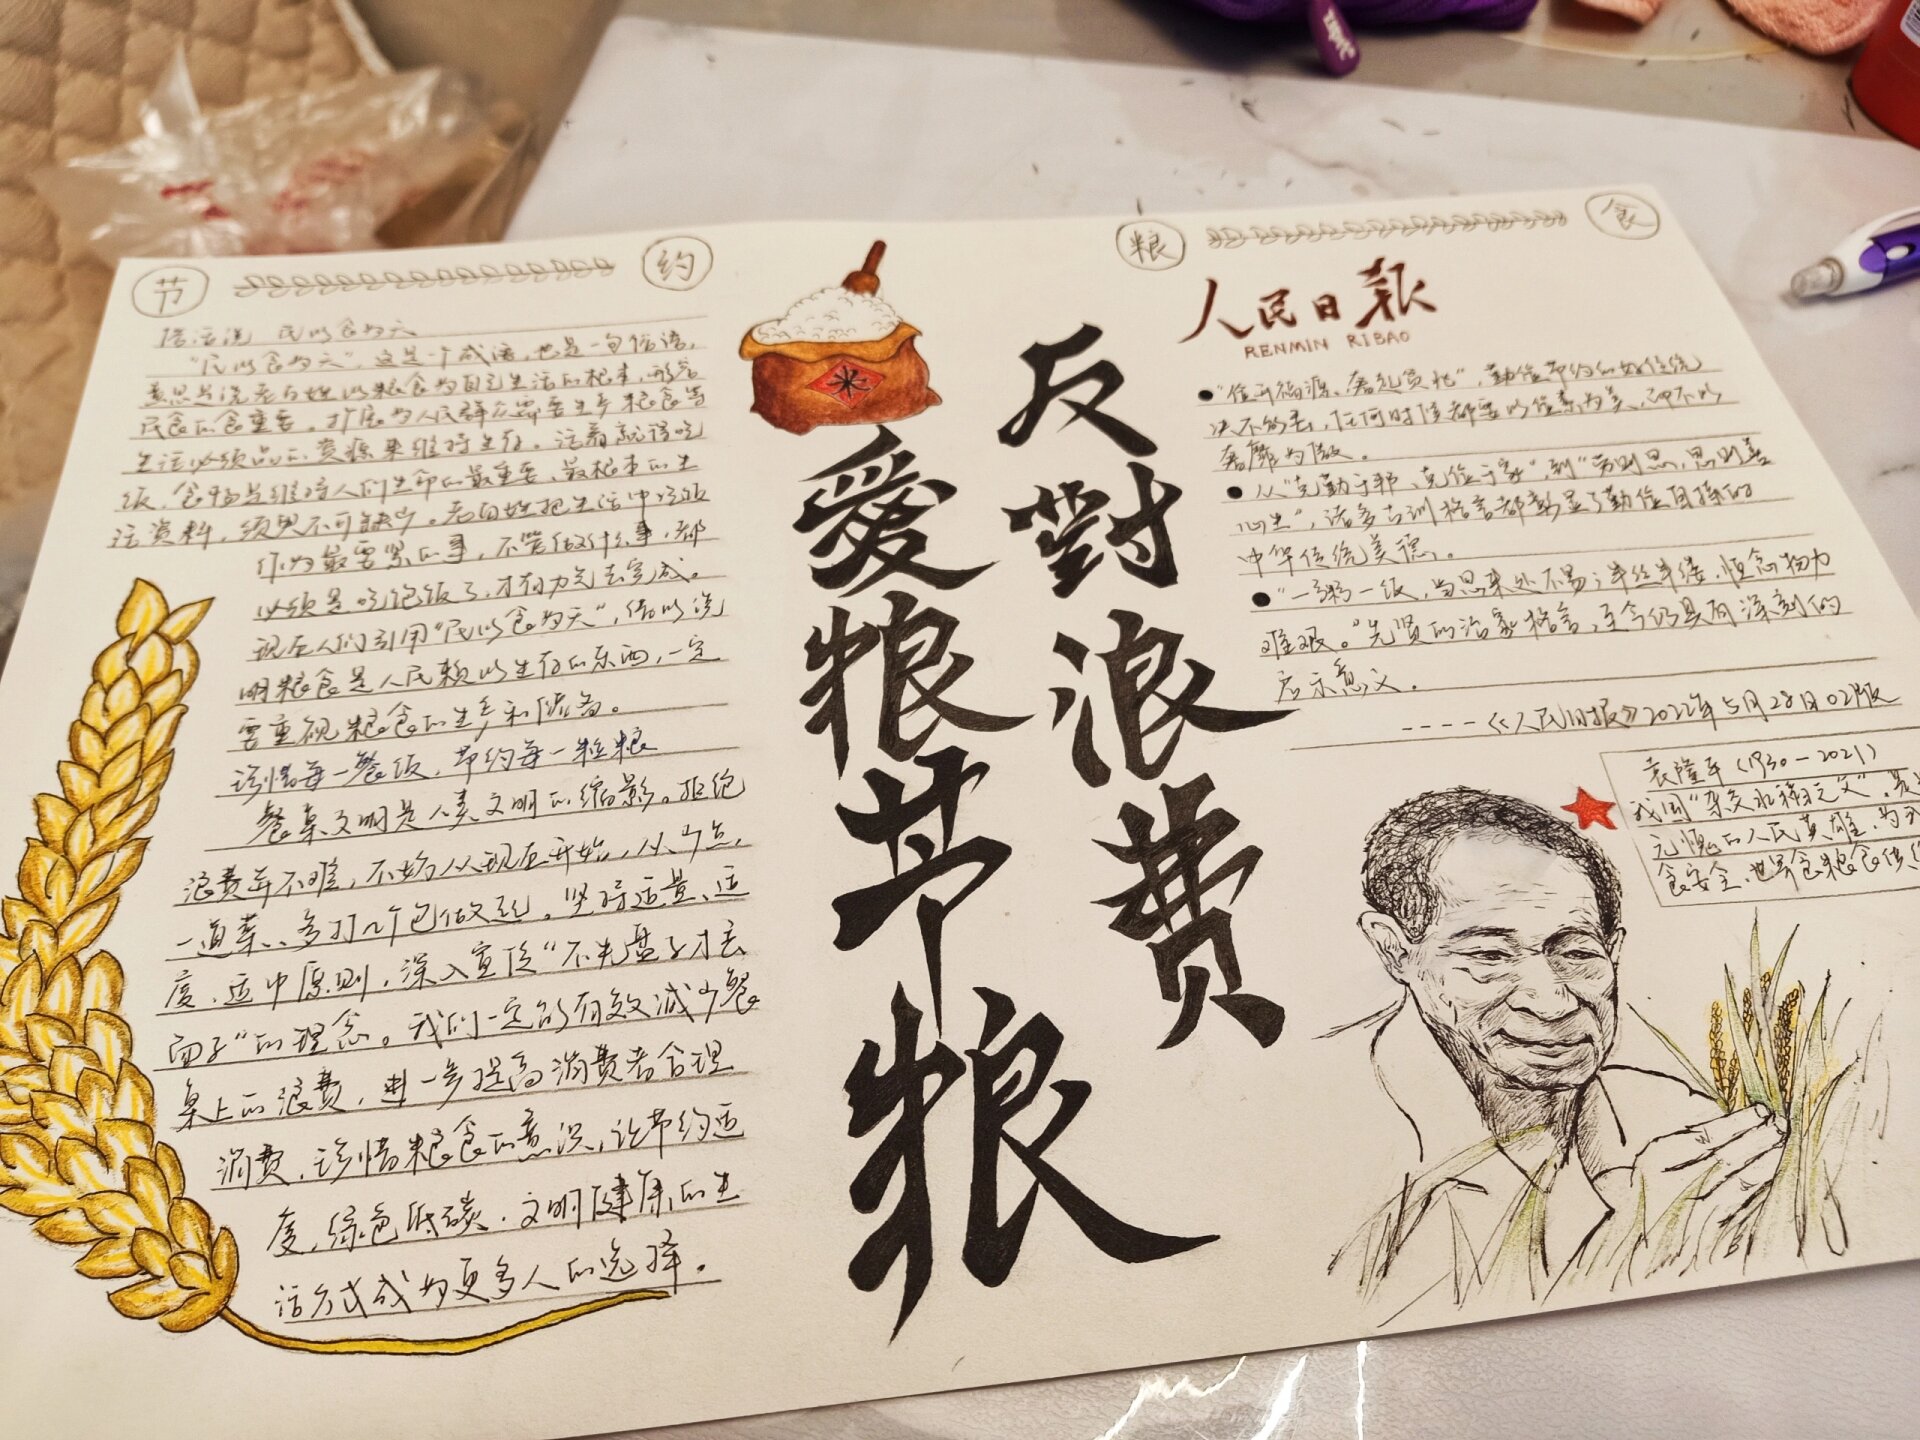 节
约
粮
食
俗话说 民以食为天
"民以食为天",这是一个成语,也是一句俗语,
意思是说老百姓以粮食为自己生活的根本,形容
民食的食重要。扩展为人民群众需要生产粮食等
生活必须品的资源来维持生存。活着就得吃
饭,食物是维持人们生命的最重要、最根本的生
活资料,须臾不可缺少。老百姓把生活中吃饭
作为最要紧的事,不管做什么事,都
必须是吃饱饭了,才有力气去完成。
现在人们引用"民以食为天",借以说
明粮食是人民赖以生存的东西,一定
要重视粮食的生产和储备。
珍惜每一餐饭,节约每一粒粮
餐桌文明是人类文明的缩影。拒绝
浪费并不难,不妨从现在开始,从少点
一道菜、多打几个包做起。坚持适量、适
度、适中原则,深入宣传"不光盘子才丢
面子"的理念。我们一定能有效减少餐
桌上的浪费,进一步提高消费者合理
消费、珍惜粮食的意识,让节约适
度、绿色低碳、文明健康的生
活方式成为更多人的选择。
米
反對浪费
愛粮节粮
人民日報
RENMIN RIBAO
●"俭开福源,奢起贫兆",勤俭节约的好传统
决不能丢,任何时候都要以俭素为美,而不以
奢靡为傲。
●从"克勤于邦,克俭于家",到"劳则思,思则善
心生",诸多古训格言都彰显了勤俭自持的
中华传统美德。
●"一粥一饭,当思来处不易;半丝半缕,恒念物力
难艰。"先贤的治家格言,至今仍具有深刻的
启示意义。
----《人民日报》2022年5月28日02版
袁隆平(1930-2021)
我国"杂交水稻之父",是
无愧的人民英雄,为我
食安全、世界食粮食供